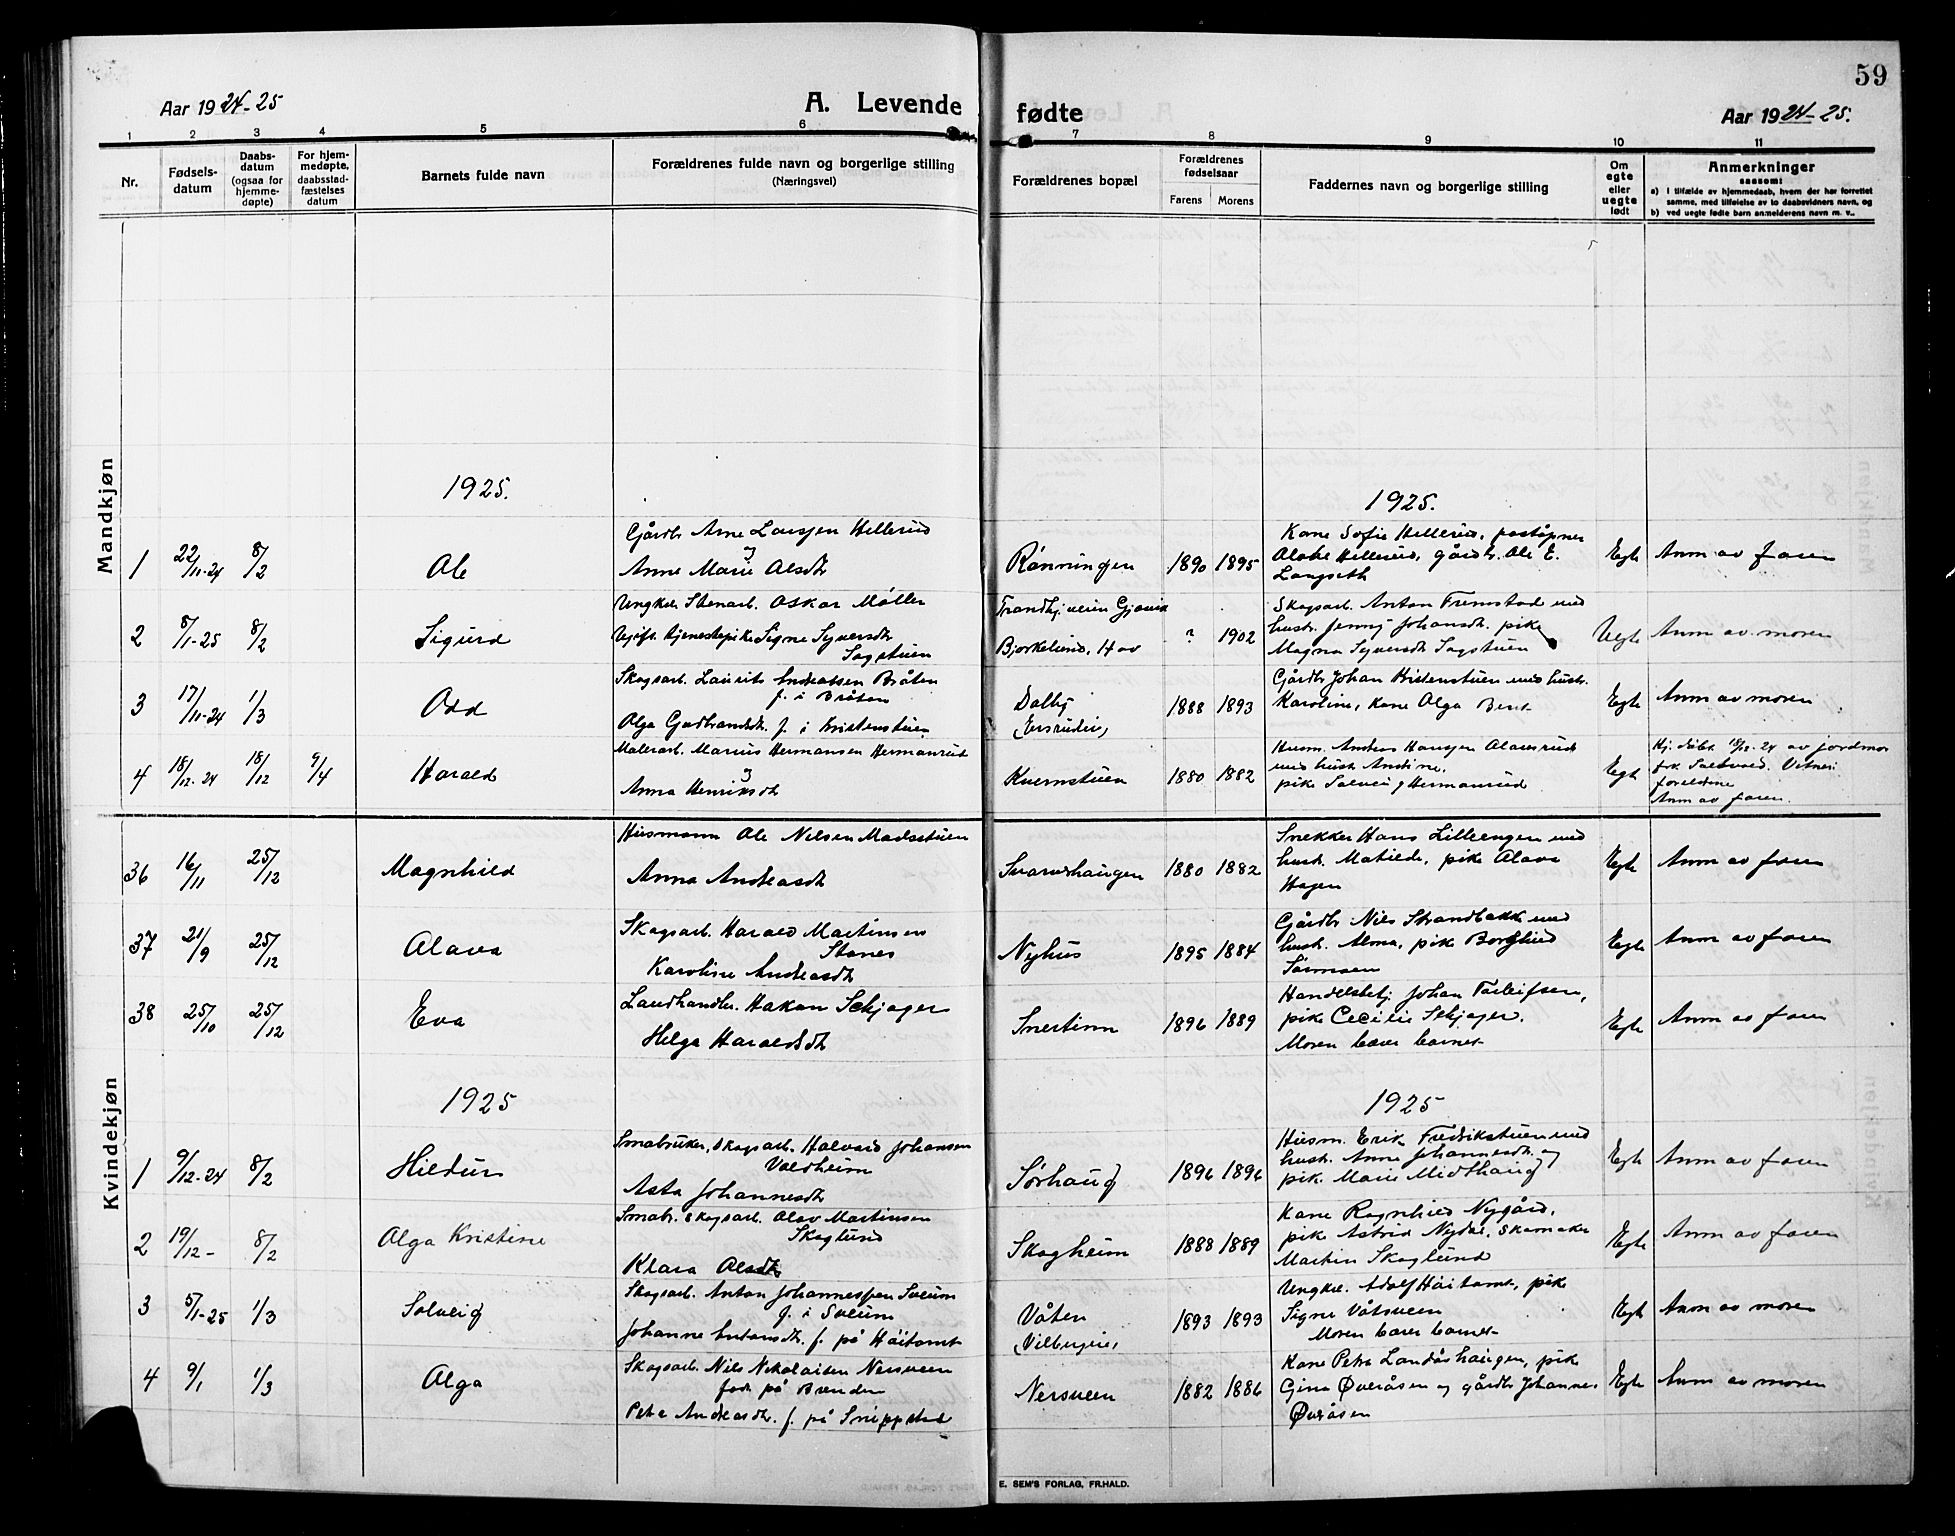 59
Aar 1924-25
A. Levende fødte
Aar 1924-25.
1 2 3 4 5 6 7 8 9 10 11
Nr.
Fødsels-
datum
Daabs-
datum
(ogsaa for
hjemme-
døpte)
For hjem-
medøpte,
daabsstad-
fæstelses
datum
Barnets fulde navn
Forældrenes fulde navn og borgerlige stilling
(Næringsvei)
Forældrenes bopæl
Forældrenes
fødselsaar
Farens Morens
Faddernes navn og borgerlige stilling
Om
egte
eller
uegte
født
Anmerkninger
saasom:
a) i tilfælde av hjemmedaab, hvem der har forrettet
samme, med tilføielse av to daabsvidners navn, og
b) ved uegte fødte barn anmelderens navn m. v..
Mandkjøn
1925.
1925.
1 22/11-24 8/2 Ole
Gårdbr Arne Larssen Hellerud
Anne Marie Olsdtr
Rønningen 1890 1895
Kone Sofie Hellerud, postøpner
Hellerud, gårdbr. Ole E.
Langseth
Egte Anm av faren
2 8/1-25 8/2 Sigurd
Ungkar Stenarb. Oskar Møller
Ugift tjenestepike Signe Syversdtr
Sagstuen
Trondhj. veien Gjøvik
Bjørkelund, Hov
? 1902
Skogsarb. Anton Fremstad med
hustr. Jenny Johansdtr. pike
Magna Syversdtr Sagstuen
Uegte Anm av moren
3 17/11-24 1/3 Odd
Skogsarb. Laurits Andreassen Bråten
f. i Bråten
Olga Gudbrandsdtr. f. i Kristenstuen
Dalby
1888 1893
Gårdbr Johan Kristenstuen med hustr.
Karoline, kone Olga
Egte Anm av moren
4 18/12-24 18/12 9/4 Harald
Malerarb. Marius Hermansen Hermanrud
Anna Henriksdtr
Kvernstuen 1880 1882
Husm. Anders Hansen Olausrud
med hustr Andine,
pike Solveig Hermanrud
Egte
Hj. døbt 18/12-24 av jordmor
frk. Vitner:
foreldrene
Anm av faren.
36 16/11 25/12 Magnhild
Husmann Ole Nilsen Madsstuen
Anna Andreasdtr
Svarvshaugen 1880 1882
Snekker Hans Lilleengen med
hustr. Matilde, pike Olava
Hagen
Egte Anm av faren
37 21/9 25/12 Olava
Skogsarb. Harald Martinsen
Stenes
Karoline Andreasdtr
Nyhus 1895 1884
Gårdbr Nils Strandbakke med
hustr. Alma, pike Borghild
Sørmoen
Egte Anm av faren
38 25/10 25/12 Eva
Landhandler. Håkon Schjager
Helga Haraldsdtr
Snertinn 1896 1889
Handelsbetj. Johan Torleifsen,
pike Cecilie Schjager.
Moren bærer barnet
Egte Anm av faren
Kvindekjøn
1925
1925
1 9/12-24 8/2 Hildur
Småbruker, skogsarb. Halvard Johansen
Valdheim
Asta Johannesdtr
Sørhaug 1896 1896
Husm. Erik Fredrikstuen med
hustr. Anne Johannesdtr. og
pike Marie Midthaug
Egte Anm av faren
2 19/12- 8/2 Olga Kristine
Småbr. skogsarb. Olav Martinsen
Skoglund
Klara Olsdtr
Skogheim 1888 1889
Kone Ragnhild Nygård,
pike Astrid Nydal, skomaker
Martin Skoglund
Egte Anm av faren
3 5/1-25 1/3 Solveig
Skogsarb. Anton Johannessen Sveum
f. i Sveum
Johanne Antonsdtr. f. på Høitomt
Våten
1893 1893
Ungkar. Adolf Høitomt, pike
Signe Våtsveen
Moren bærer barnet
Egte Anm av moren
4 9/1 1/3 Olga
Skogsarb. Nils Nikolaisen Nersveen
født på Brenden
Petra Andreasdtr. f. på Snippstad
Nersveen 1882 1886
Kone Petra Landåshaugen, pike
Gina Øveråsen og gårdbr Johannes
Øveråsen
Egte Anm av moren
E. SEM'S FORLAG, FR.HALD.